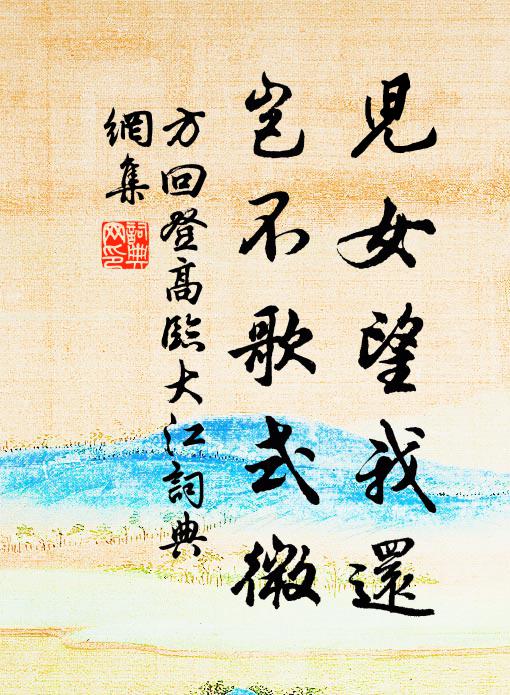 兒女望我還
豈不歌式微
方回登高臨大江詞典
網集
詞典
网印